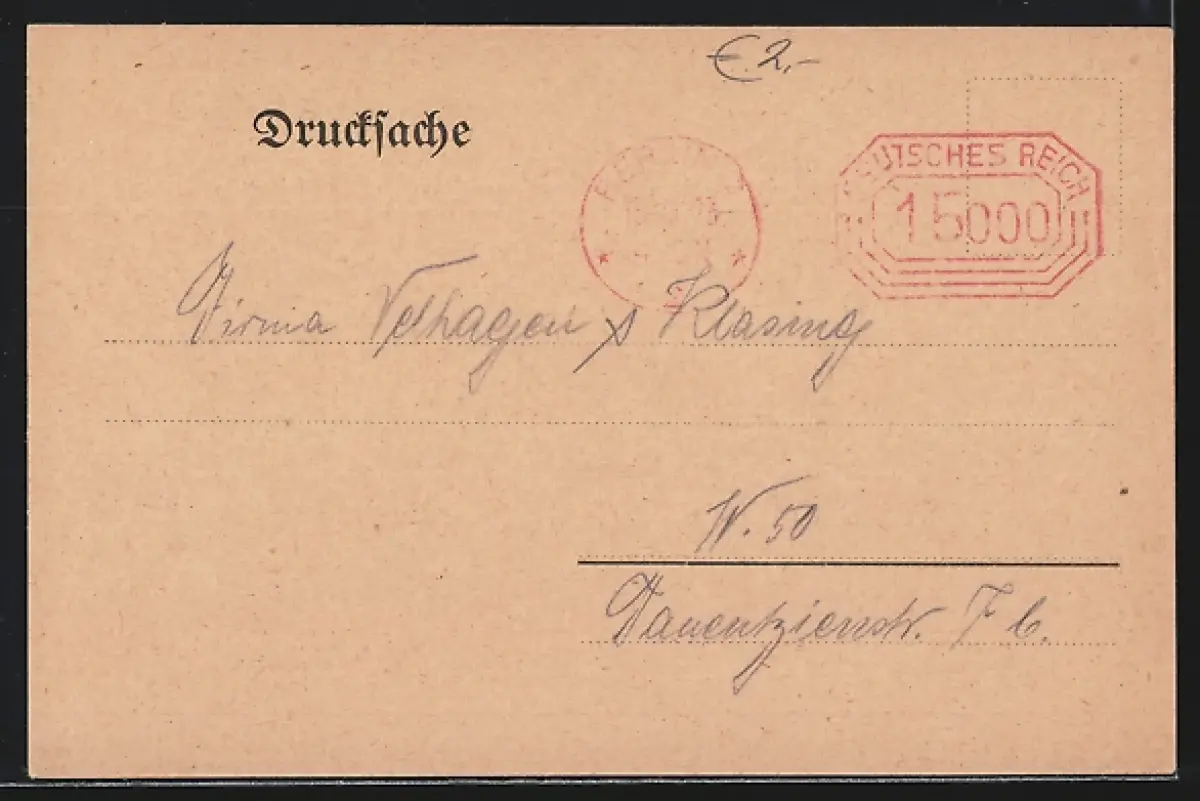 € 2,-
Drucksache
DEUTSCHES REICH
15000
Firma Velhagen & Klasing
W. 50
Tauentzienstr. 7 b.